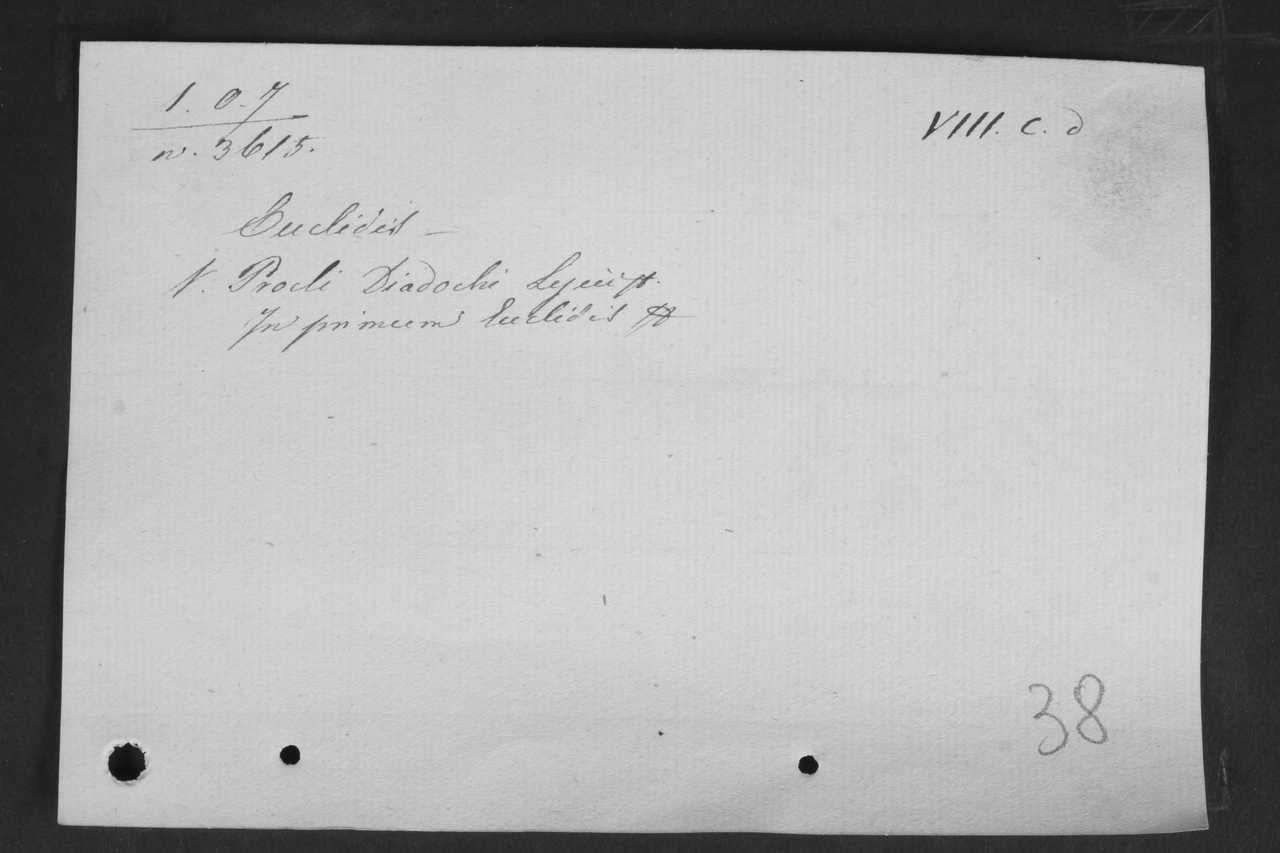 1. O. 7
n. 3615.
VIII. C. d
Euclidis —
V. Procli Diadochi
In primum Euclidis
38